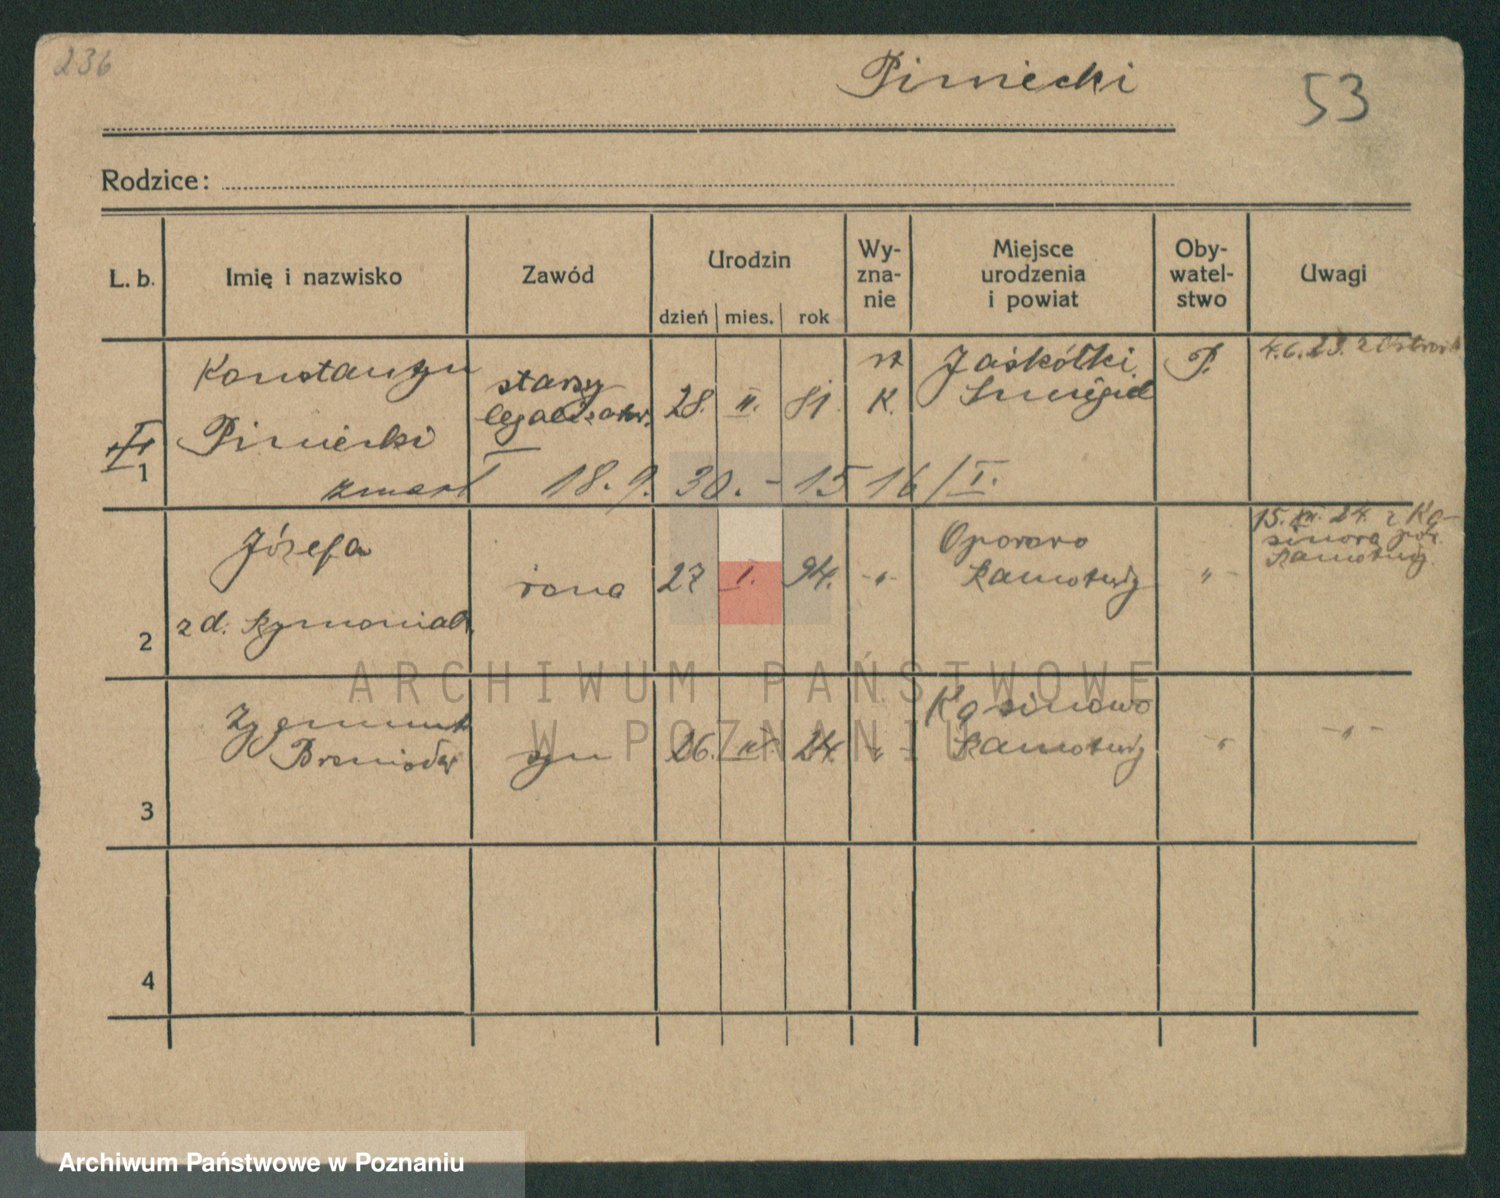 236
Piniecki
53
Rodzice:
L. b.
Imię i nazwisko
Zawód
Urodzin
dzień
mies.
rok
Wy-
zna-
nie
Miejsce
urodzenia
i powiat
Oby-
watel-
stwo
Uwagi
1
Konstanty
Piniecki
starszy
28. II. 81.
K.
Jaskółki
Śmigiel
P.
4.6.23. z
zmarł 18.9.30. - 15 16/I.
2
Józefa
z d. Szymoniak
żona
27 I. 94.
-„-
Oporowo
Szamotuły
-„-
15. 24. z Ką-
sinowa pow.
Szamotuły
3
Zygmunt
syn
26. 24.
-„-
Kąsinowo
Szamotuły
„
-„-
4
ARCHIWUM PAŃSTWOWE
W POZNANIU
Archiwum Państwowe w Poznaniu